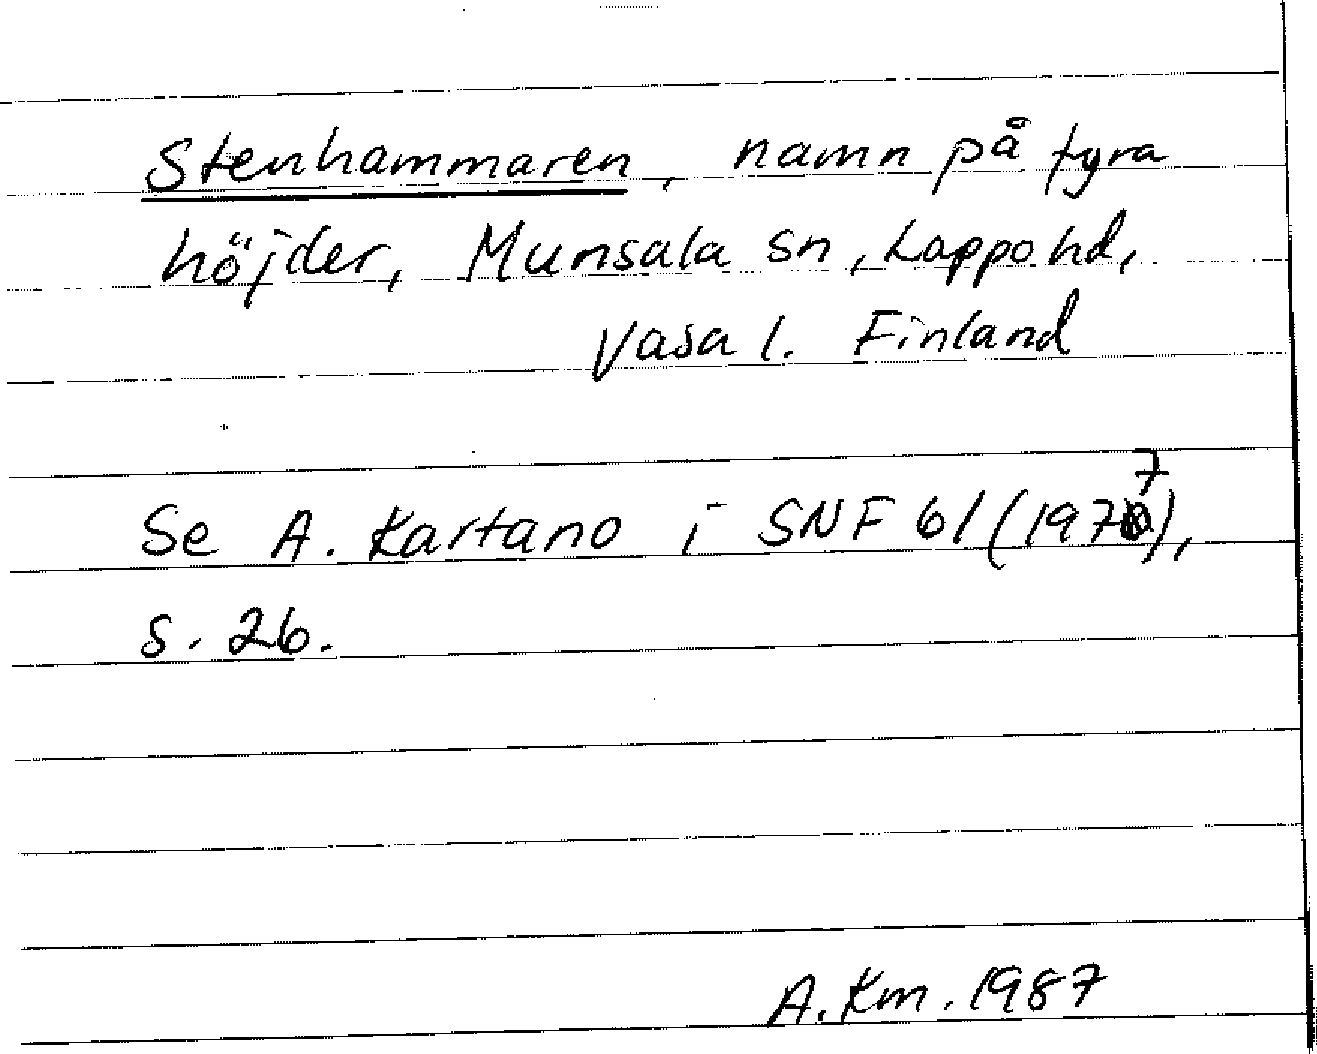 Stenhammaren, namn på fyra
höjder, Munsala sn, Lappo hd,
Vasa l. Finland
Se A. Kartano i SNF 61 (1977),
s. 26.
A. Km. 1987